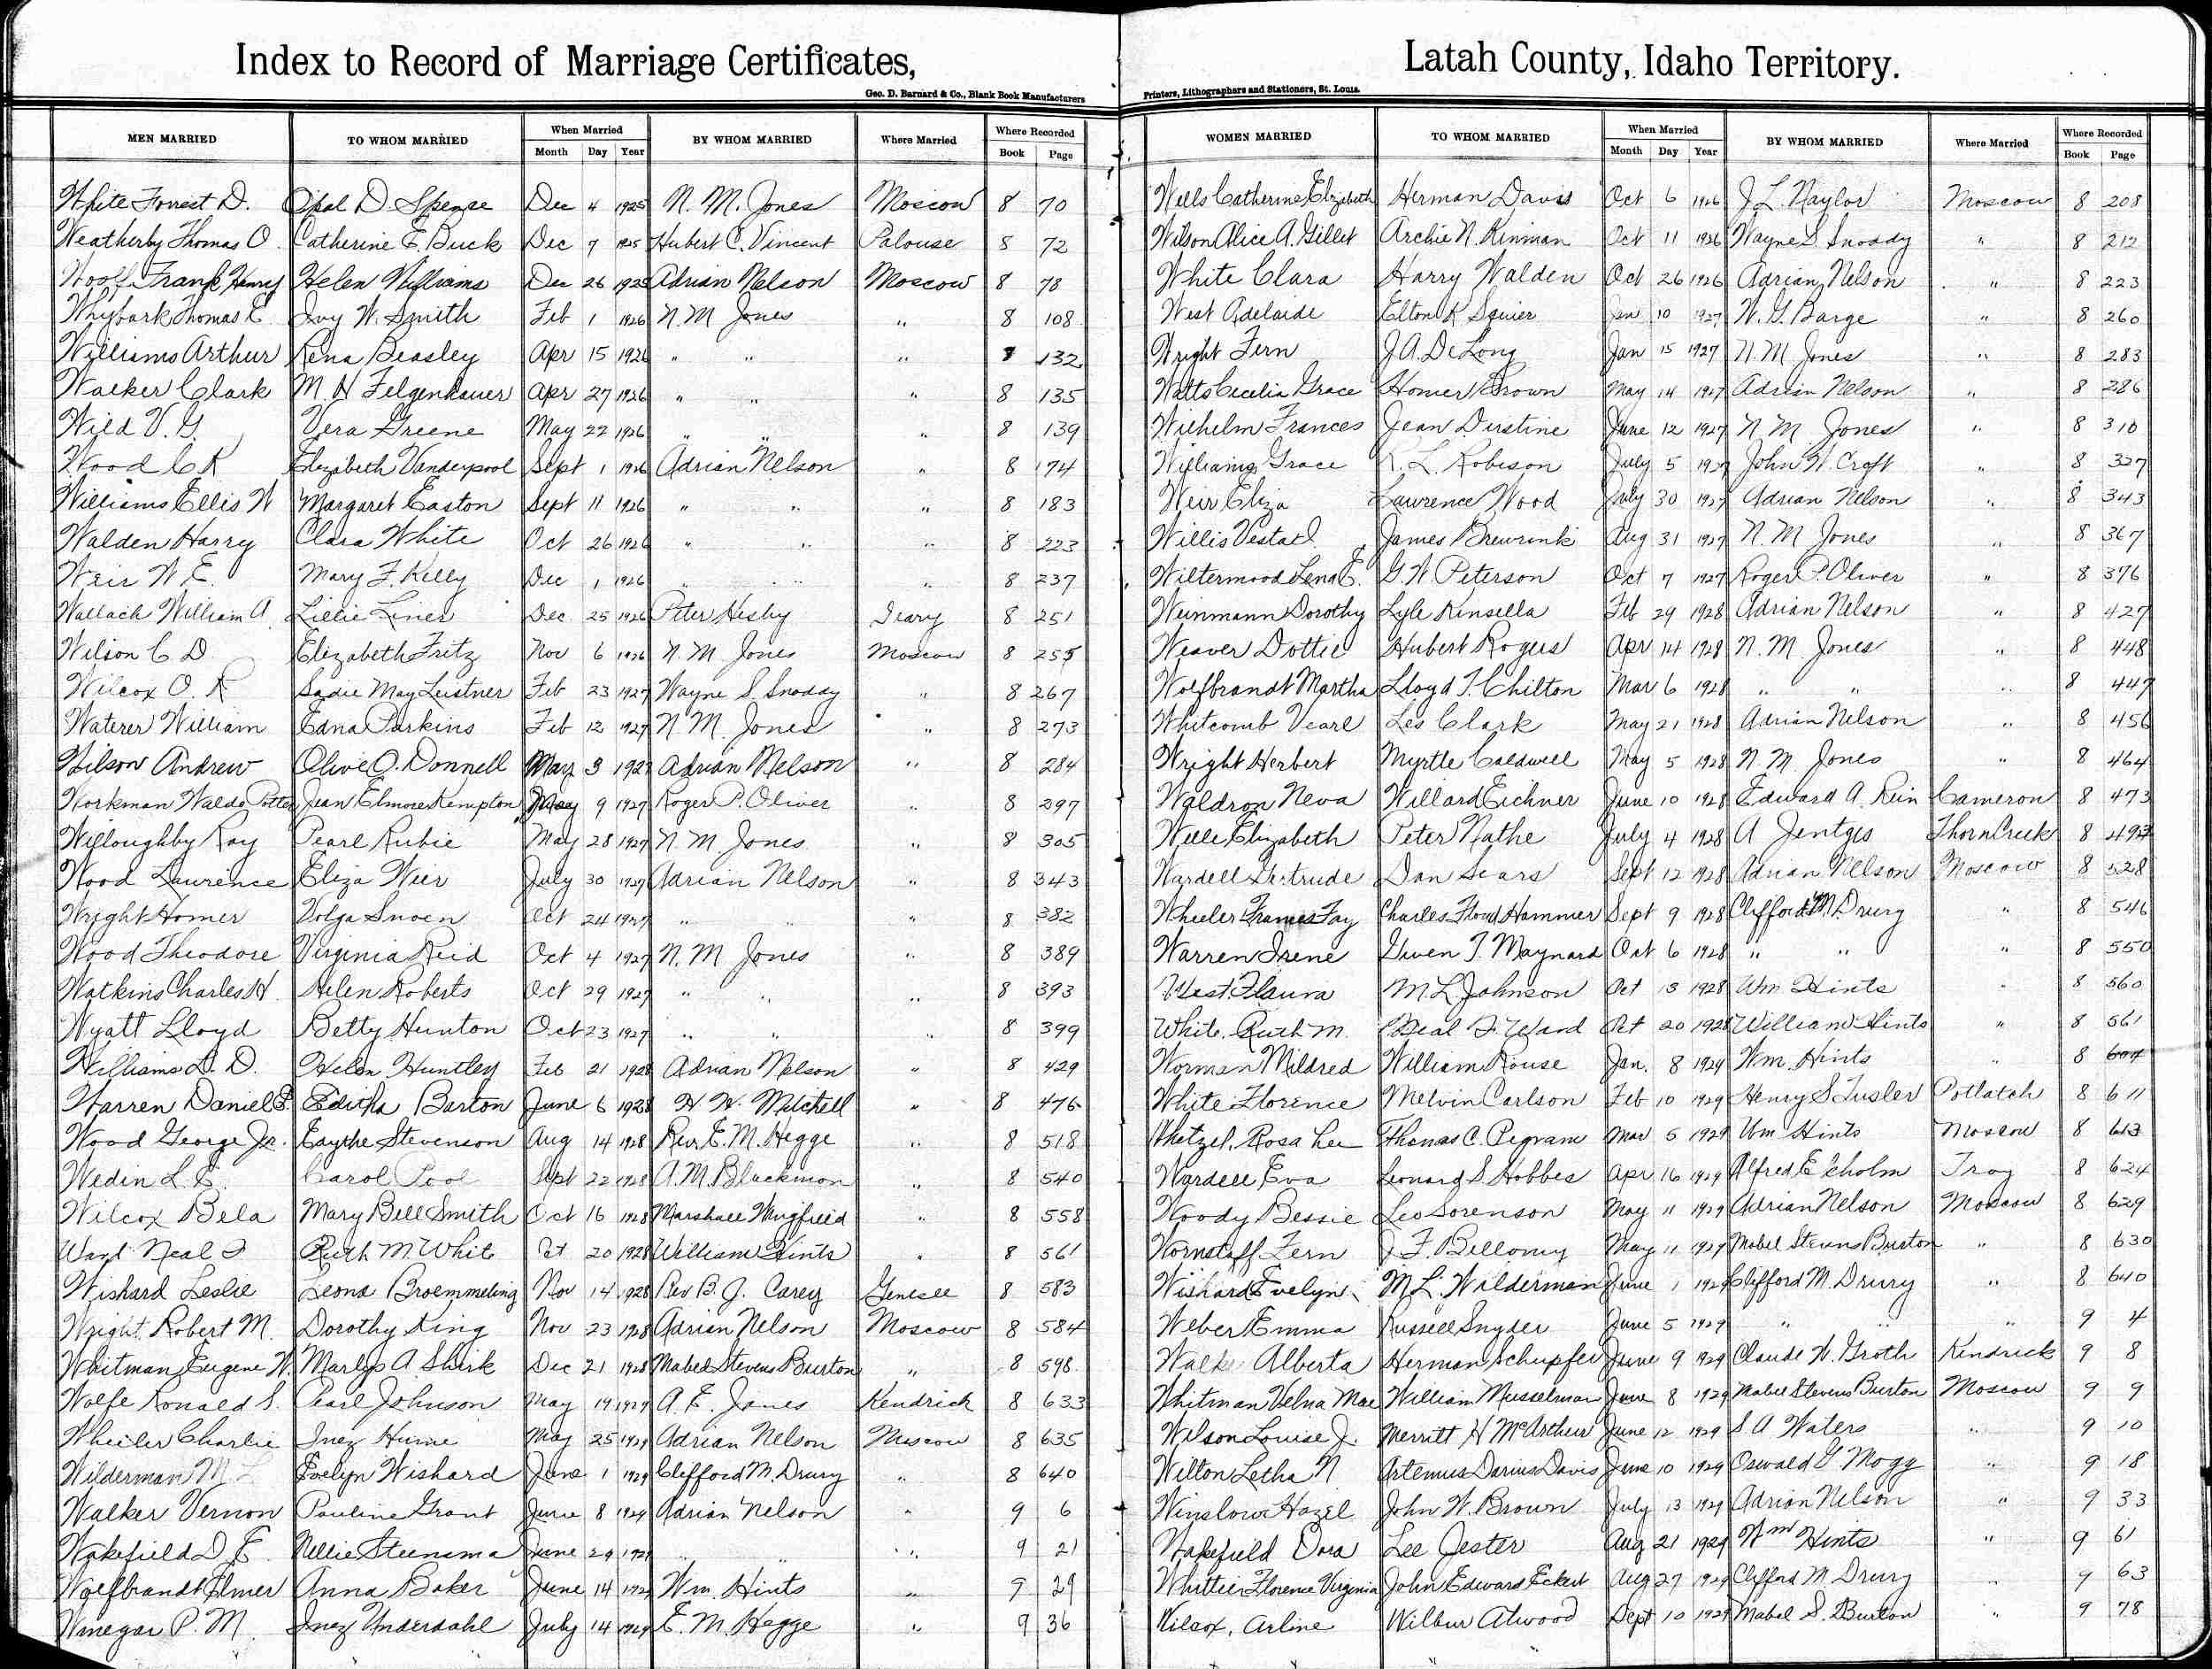 Index to Record of Marriage Certificates,
Geo. D. Barnard & Co., Blank Book Manufacturers
MEN MARRIED TO WHOM MARRIED When Married BY WHOM MARRIED Where Married Where Recorded
Month Day Year Book Page
White Forrest D. Opal D. Spense Dec 4 1925 N. M. Jones Moscow 8 70
Weatherby Thomas O. Catherine E. Buck Dec 7 1925 Hubert C. Vincent Palouse 8 72
Woolf Frank Henry Helen Williams Dec 26 1925 Adrian Nelson Moscow 8 78
Whybark Thomas E Ivy W. Smith Feb 1 1926 N. M Jones " 8 108
Williams Arthur Rena Beasley Apr 15 1926 " " " 8 132
Walker Clark M. H Felgenhauer Apr 27 1926 " " " 8 135
Wild V. G. Vera Greene May 22 1926 " " " 8 139
Wood C K Elizabeth Vanderpool Sept 1 1926 Adrian Nelson " 8 174
Williams Ellis W Margaret Easton Sept 11 1926 " " " 8 183
Walden Harry Clara White Oct 26 1926 " " " 8 223
Weir W. E. Mary F. Kelly Dec 1 1926 " " " 8 237
Wallach William A. Lillie Liner Dec 25 1926 Peter Hesby Deary 8 251
Wilson C D. Elizabeth Fritz Nov 6 1926 N. M. Jones Moscow 8 255
Wilcox O. R Sadie May Leistner Feb 23 1927 Wayne S. Snoddy " 8 267
Waterer William Edna Parkins Feb 12 1927 N. M. Jones " 8 273
Wilson Andrew Olive O. Donnell May 3 1927 Adrian Nelson " 8 284
Workman Waldo Potter Jean Elmore Kempton May 9 1927 Roger P. Oliver " 8 297
Willoughby Roy Pearl Rubie May 28 1927 N. M. Jones " 8 305
Wood Lawrence Eliza Weir July 30 1927 Adrian Nelson " 8 343
Wright Homer Volga Snoen Oct 24 1927 " " " 8 382
Wood Theodore Virginia Reid Oct 4 1927 N. M Jones " 8 389
Watkins Charles H. Helen Roberts Oct 29 1927 " " " 8 393
Wyatt Lloyd Betty Hunton Oct 23 1927 " " " 8 399
Williams L. D. Helen Huntley Feb 21 1928 Adrian Nelson " 8 429
Warren Daniel E. Editha Barton June 6 1928 H. H. Mitchell " 8 476
Wood George Jr. Eaythe Stevenson Aug 14 1928 Rev. E. M. Hegge " 8 518
Wedin L. E. Carol Pool Sept 22 1928 A. M. Blackmon " 8 540
Wilcox Bela Mary Bell Smith Oct 16 1928 Marshall Wingfreid " 8 558
Ward Neal F Ruth M. White Oct 20 1928 William Hints " 8 561
Wishard Leslie Leona Broemmeling Nov 14 1928 Rev B. J. Carey Genesee 8 583
Wright. Robert M. Dorothy King Nov 23 1928 Adrian Nelson Moscow 8 584
Whitman Eugene W. Marlys A. Shirk Dec 21 1928 Mabel Stevens Burton " 8 598
Wolfe Ronald S. Pearl Johnson May 19 1929 A. E. Janes Kendrick 8 633
Wheeler Charlie Inez Hume May 25 1929 Adrian Nelson Moscow 8 635
Wilderman M L Evelyn Wishard June 1 1929 Clifford M. Drury " 8 640
Walker Vernon Pauline Grant June 8 1929 Adrian Nelson " 9 6
Wakefield D. E. Nellie Steensma June 29 1929 " " " 9 21
Wolfbrandt Elmer Anna Baker June 14 1929 Wm. Hints " 9 29
Winegar P. M. Inez Underdahl July 14 1929 E. M. Hegge " 9 36
Latah County, Idaho Territory.
Printers, Lithographers and Stationers, St. Louis.
WOMEN MARRIED TO WHOM MARRIED When Married BY WHOM MARRIED Where Married Where Recorded
Month Day Year Book Page
Wells Catherine Elizabeth Herman Davis Oct 6 1926 J. L. Naylor Moscow 8 208
Wilson Alice A. Gillet Archie N. Kinman Oct 11 1926 Wayne S. Snoddy " 8 212
White Clara Harry Walden Oct 26 1926 Adrian Nelson " 8 223
West Adelaide Elton K Squier Jan 10 1927 W. G. Barge " 8 260
Wright Fern J. A. DeLong Jan 15 1927 N. M. Jones " 8 283
Watts Cecelia Grace Homer Brown May 14 1927 Adrian Nelson " 8 286
Wilhelm Frances Jean Durstine June 12 1927 N. M Jones " 8 310
Williams Grace R. L. Robison July 5 1927 John W. Croft " 8 327
Weir Eliza Lawrence Wood July 30 1927 Adrian Nelson " 8 343
Willis Vesta I. James Brewrink Aug 31 1927 N. M Jones " 8 367
Wiltermood Lena E. G. W Peterson Oct 7 1927 Roger P. Oliver " 8 376
Weinmann Dorothy Lyle Kinsella Feb 29 1928 Adrian Nelson " 8 427
Weaver Dottie Hubert Rogers Apr 14 1928 N. M. Jones " 8 448
Wolfbrandt Martha Lloyd T. Chilton Mar 6 1928 " " " 8 447
Whitcomb Vearl Les Clark May 21 1928 Adrian Nelson " 8 456
Wright Herbert Myrtle Caldwell May 5 1928 N. M Jones " 8 464
Waldron Neva Willard Eichner June 10 1928 Edward A. Rein Cameron 8 473
Welle Elizabeth Peter Nathe July 4 1928 A Jentges Thorn Creek 8 493
Wardell Gertrude Dan Sears Sept 12 1928 Adrian Nelson Moscow 8 528
Wheeler Frances Fay Charles Flood Hammer Sept 9 1928 Clifford M. Drury " 8 546
Warren Irene Gwen T. Maynard Oct 6 1928 " " " 8 550
West. Flaura M. L Johnson Oct 13 1928 Wm Hints " 8 560
White, Ruth M. Neal F. Ward Oct 20 1928 William Hints " 8 561
Worman Mildred William Rouse Jan. 8 1929 Wm. Hints " 8 604
White Florence Melvin Carlson Feb 10 1929 Henry S Tusler Potlatch 8 611
Whetzel, Rosa Lee Thomas C. Pegram Mar 5 1929 Wm Hints Moscow 8 613
Wardell Eva Leonard S. Hobbes Apr 16 1929 Alfred E'cholm Troy 8 624
Woody Bessie Leo Sorenson May 11 1929 Adrian Nelson Moscow 8 629
Wornstaff Fern J F. Bellomy May 11 1929 Mabel Stevens Burton " 8 630
Wishard Evelyn M. L. Wilderman June 1 1929 Clifford M. Drury " 8 640
Weber Emma Russell Snyder June 5 1929 " " " 9 4
Alberta Herman Schupfer June 9 1929 Claude W. Groth Kendrick 9 8
Whitman Velna Mae William Musselman June 8 1929 Mabel Stevens Burton Moscow 9 9
Wilson Louise J. Merritt H McArthur June 12 1929 S A Waters " 9 10
Wilton Letha N Artemus Darius Davis June 10 1929 Oswald G Mogg " 9 18
Winslow Hazel John W. Brown July 13 1929 Adrian Nelson " 9 33
Wakefield Dora Lee Jester Aug 21 1929 Wm Hints " 9 61
Whittier Florence Virginia John Edward Eckert Aug 27 1929 Clifford M. Drury " 9 63
Wilcox, Arline Wilbur Atwood Sept 10 1929 Mabel S. Burton " 9 78